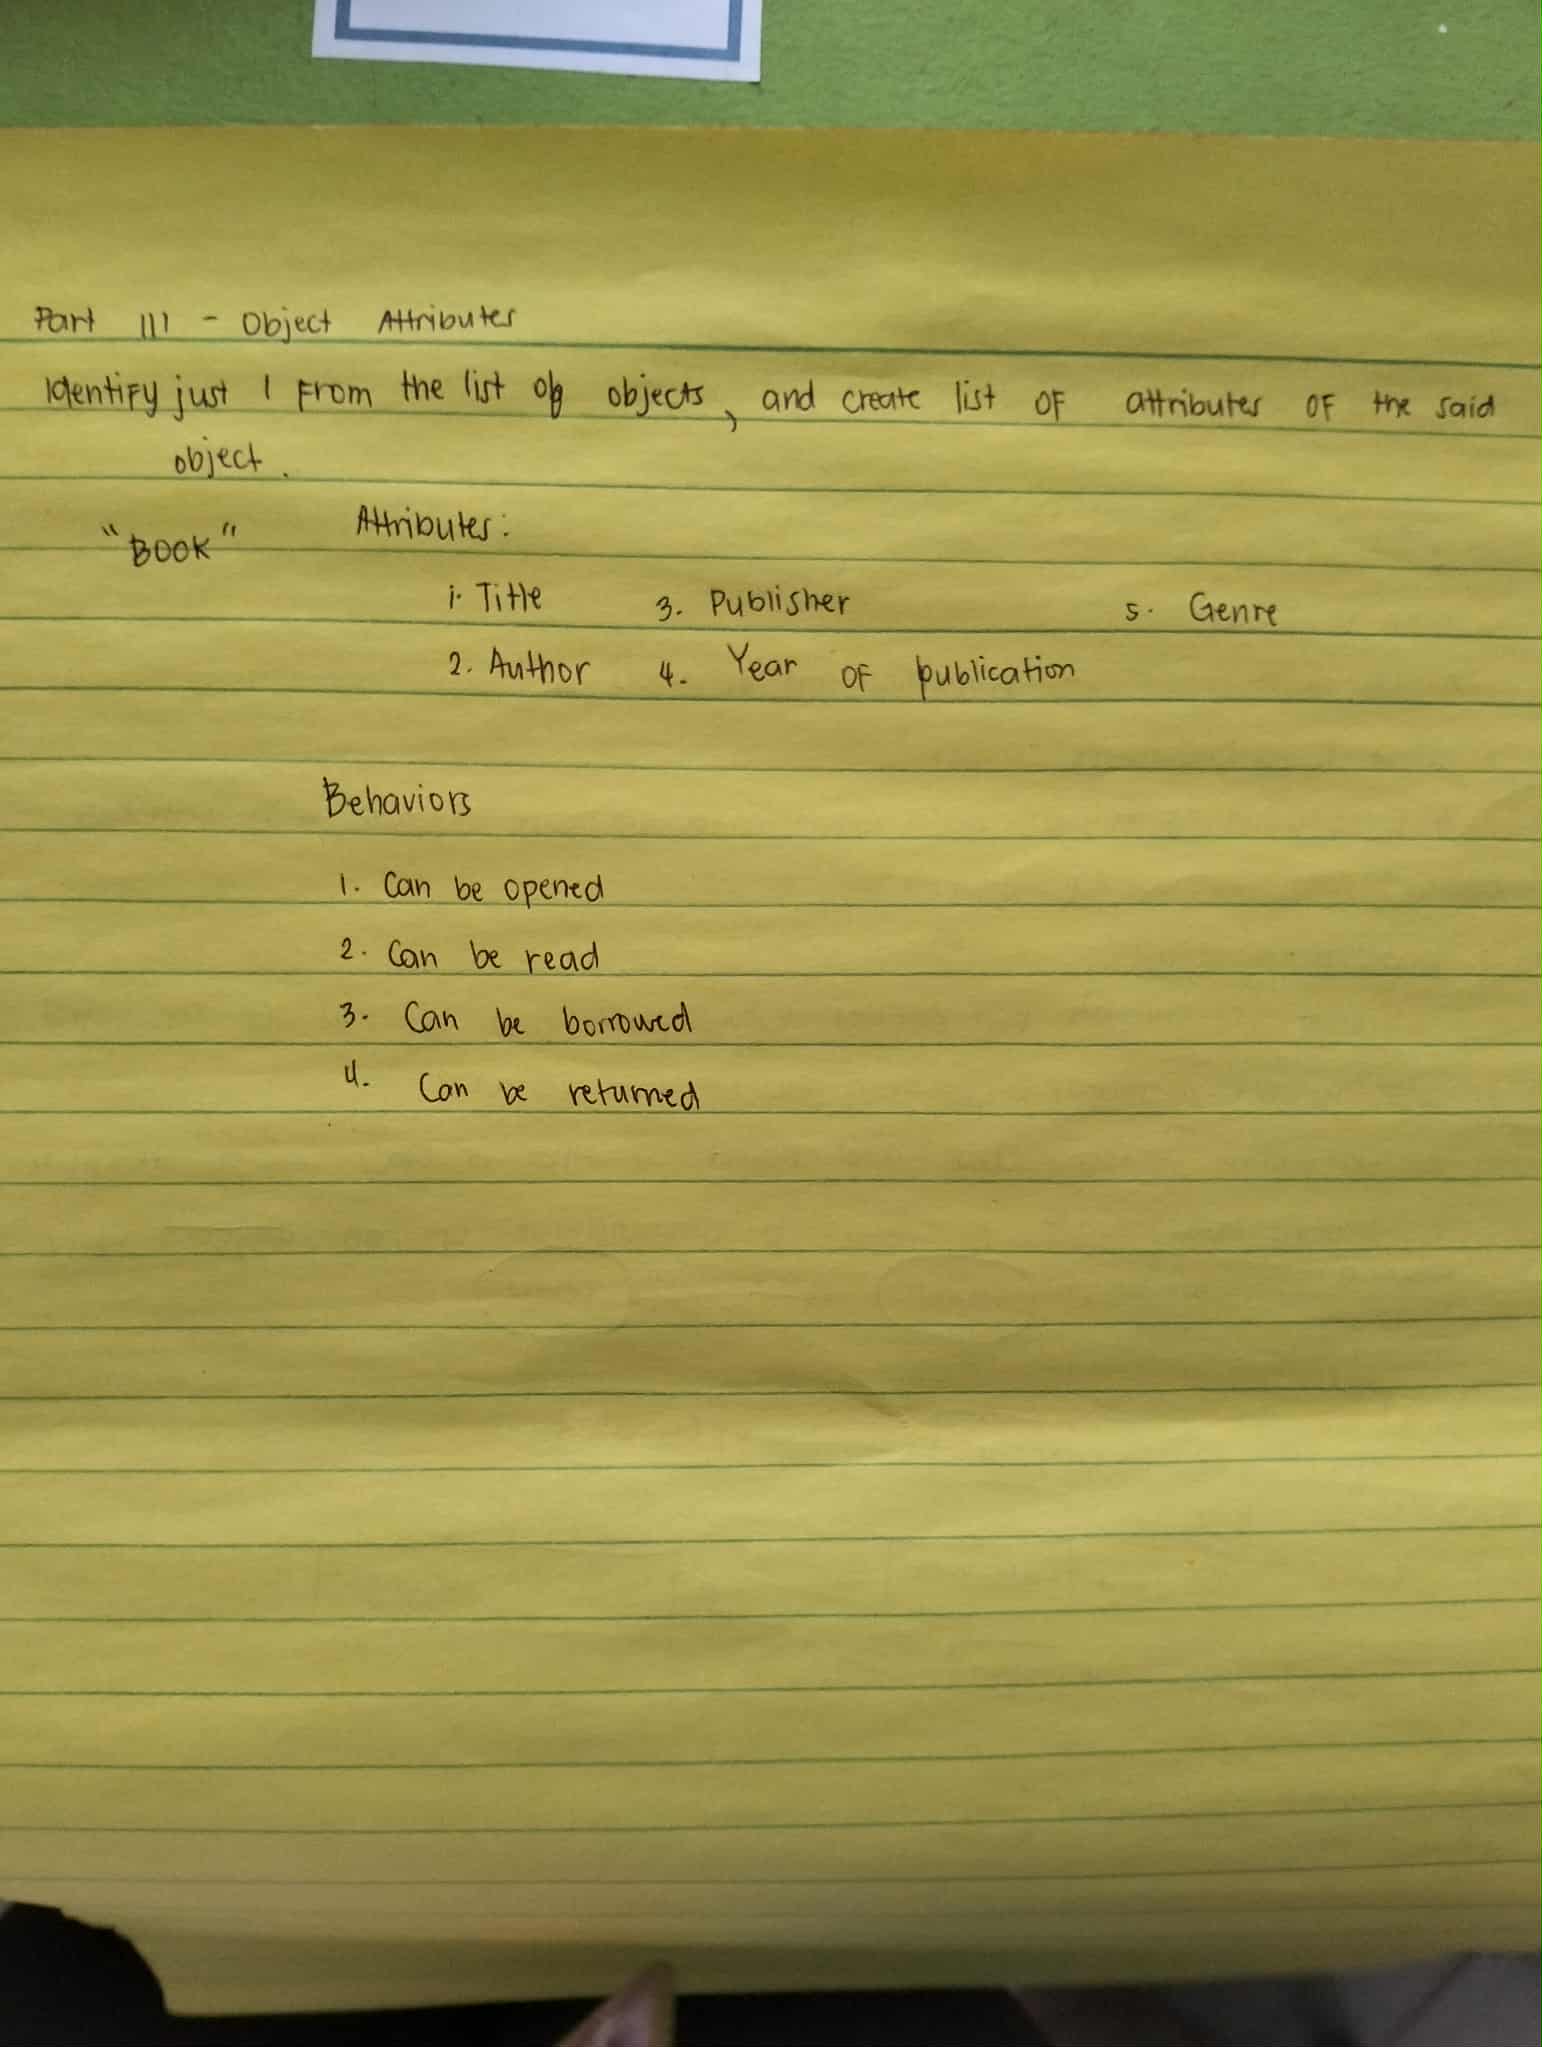 Part III - Object Attributes
Identify just 1 from the list of objects, and create list of attributes of the said
object.
"BOOK" Attributes:
1. Title 3. Publisher 5. Genre
2. Author 4. Year of publication
Behaviors
1. Can be opened
2. Can be read
3. Can be borrowed
4. Can be returned